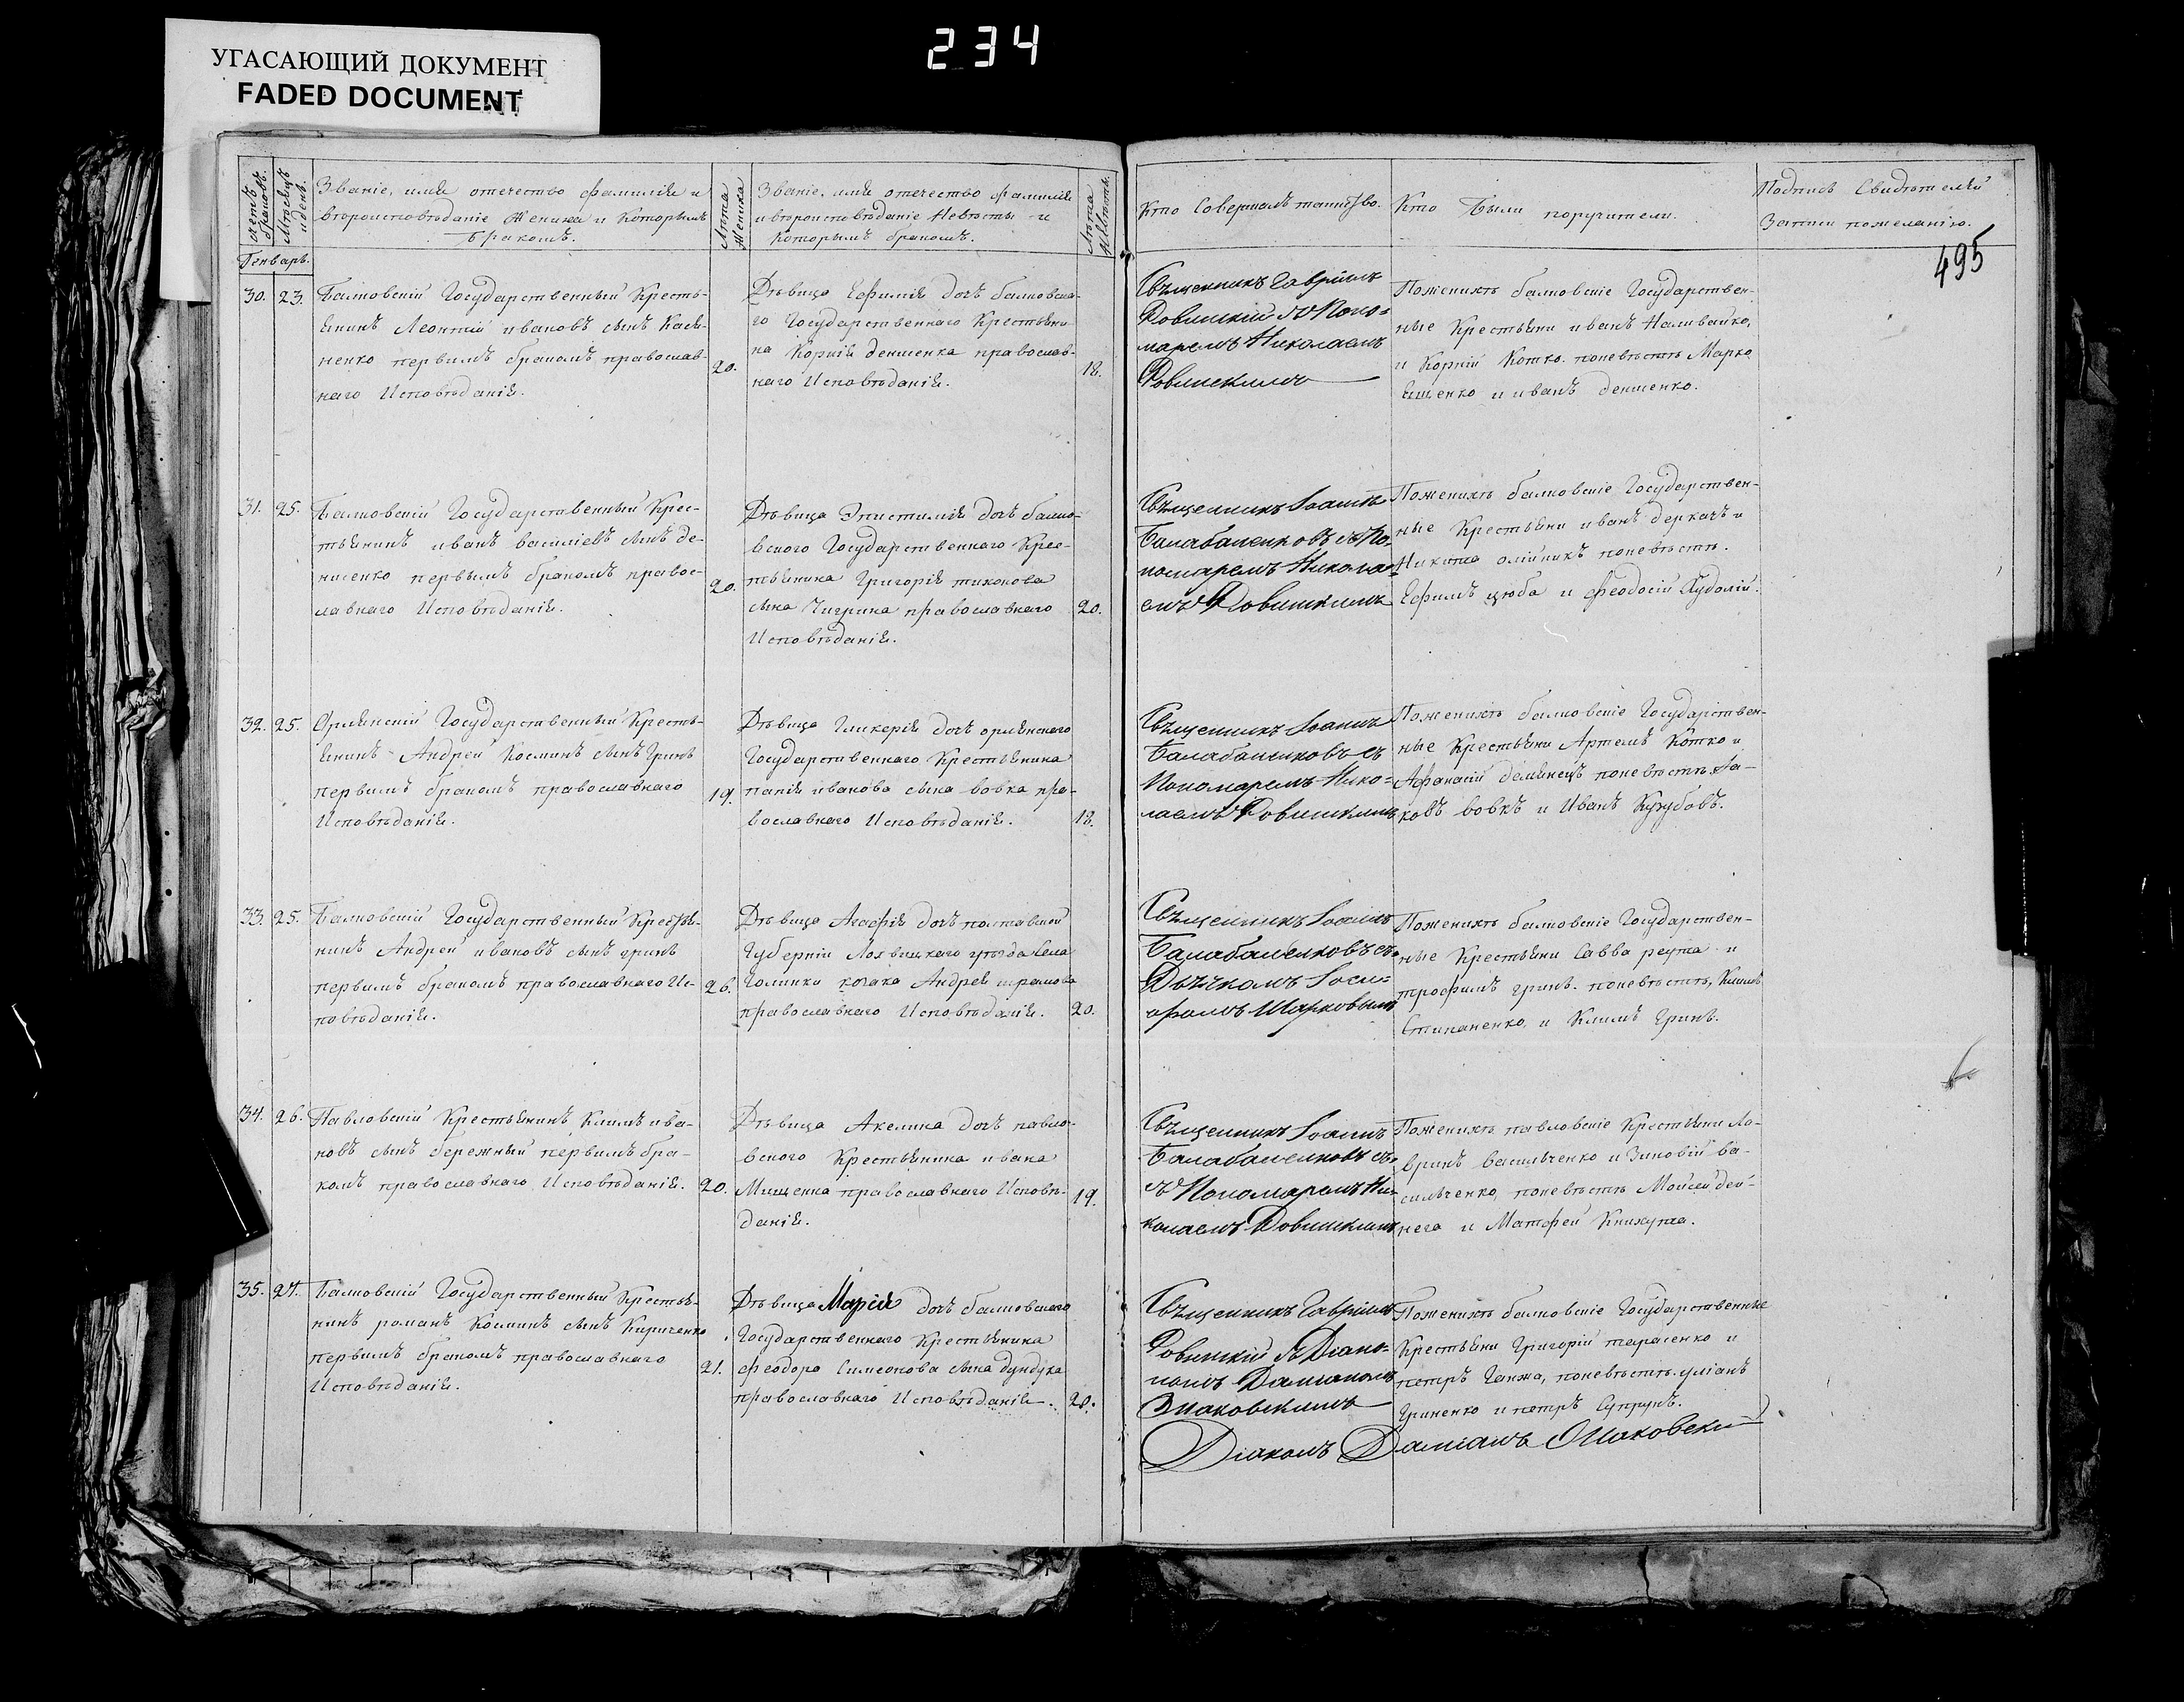 234
УГАСАЮЩИЙ ДОКУМЕНТ
FADED DOCUMENT
495
Звание, имя отечество фамилия и
вероисповѣданіе Жениха и Которымъ
бракомъ.
Лѣта Жениха
Званіе, имя отечество фамилія
и вероисповѣданіе Невѣсты и
Которымъ бракомъ.
Лѣта Невѣсты.
Кто Совершалъ таинство.
Кто Были поручители.
Подпись Свидѣтелей
Записи пожеланію.
Месяцъ и день.
Генварь.
30. 23.
Балковскій Государственный Кресть-
янинъ Леонтій ивановъ сынъ Касья-
ненко первимъ бракомъ православ-
наго Исповѣданія.
20.
Дѣвица Ефимія дочь балковска-
го Государственнаго Крестьяни-
на Корнія деншенка православ-
наго Исповѣданія.
18.
Священникъ Гавріилъ
Ровинскій съ Поно-
маремъ Николаемъ
Ровинскимъ
Поженихѣ балковскіе Государствен-
ные Крестьяни иванъ Наливайко,
и Корній Котко. поневѣстѣ Марко
Ященко и иванъ деншенко.
31. 25.
Балковскій Государственный Крес-
тьянинъ иванъ василіевъ сынъ де-
нисенко первымъ бракомъ правос-
лавнаго Исповѣданія.
20.
Дѣвица Эпистимія дочь балко-
вского Государственнаго Крес-
тьянина Григорія тихонова
сына Чигрина православнаго
Исповѣданія.
20.
Священникъ Іоаннъ
Балабаненковъ съ По-
номаремъ Никола-
емъ Ровинскимъ
Поженихѣ балковскіе Государствен-
ные Крестьяни иванъ деркачъ и
Никита олійникъ поневѣстѣ.
Ефимъ цюба и Феодосій Кудолій.
32. 25.
Орлянскій Государственный Кресть-
янинъ Андрей Косминъ сынъ Гринь
первимъ бракомъ православнаго
Исповѣданія.
19.
Дѣвица Гликерія дочь орлянскаго
Государственнаго Крестьянина
папія иванова сына вовка пра-
вославнаго Исповѣданія.
18.
Священникъ Іоаннъ
Балабаненковъ съ
Пономаремъ Нико-
лаемъ Ровинскимъ
Поженихѣ балковскіе Государствен-
ные Крестьяни Артемъ Котко и
Афанасій демянецъ поневѣстѣ Яа-
ковъ вовкъ и Иванъ Кузубовъ.
33. 25.
Балковскій Государственный Крестья-
нинъ Андрей ивановъ сынъ гринь
первимъ бракомъ православнаго Ис-
повѣданія.
26.
Дѣвица Агафія дочь полтавской
Губерніи Лохвицкаго уѣзда Села
Голинки козака Андрея шрамова
православнаго Исповѣданія.
20.
Священникъ Іоаннъ
Балабаненковъ съ
Дьячкомъ Іоси-
фомъ Шарковымъ
Поженихѣ балковскіе Государствен-
ные Крестьяни Савва реута и
трофимъ гринь. поневѣстѣ, Климъ
Стипаненко, и Климъ Гринь.
34. 26.
Павловскій Крестьянинъ Климъ ива-
новъ сынъ бережный первимъ бра-
комъ православнаго Исповѣданія.
20.
Дѣвица Акелина дочь павло-
вского Крестьянина ивана
Мищенка православнаго Исповѣ-
данія.
19.
Священникъ Іоаннъ
Балабаненковъ съ
съ Пономаремъ Ни-
колаемъ Ровинскимъ
Поженихѣ павловскіе Крестьяни Ла-
вринъ василченко и Зиновій ва-
силченко, поневѣстѣ Мойсей дей-
нега и Матфей Книжута.
35. 27.
Балковскій Государственный Крестья-
нинъ романъ Косминъ сынъ Кириченко
первимъ бракомъ православнаго
Исповѣданія.
21.
Дѣвица Марія дочь балковскаго
Государственнаго Крестьянина
феодора Симеонова сына дундука
православнаго Исповѣданія.
20.
Священникъ Гавріилъ
Ровинскій съ Діако-
номъ Даміаномъ
Знаковскимъ
Поженихѣ балковскіе Государственные
Крестьяни Григорій тарасенко и
петръ Ганжа, поневѣстѣ. уліанъ
Гриненко и петръ Супрунъ.
Діаконъ Даміанъ